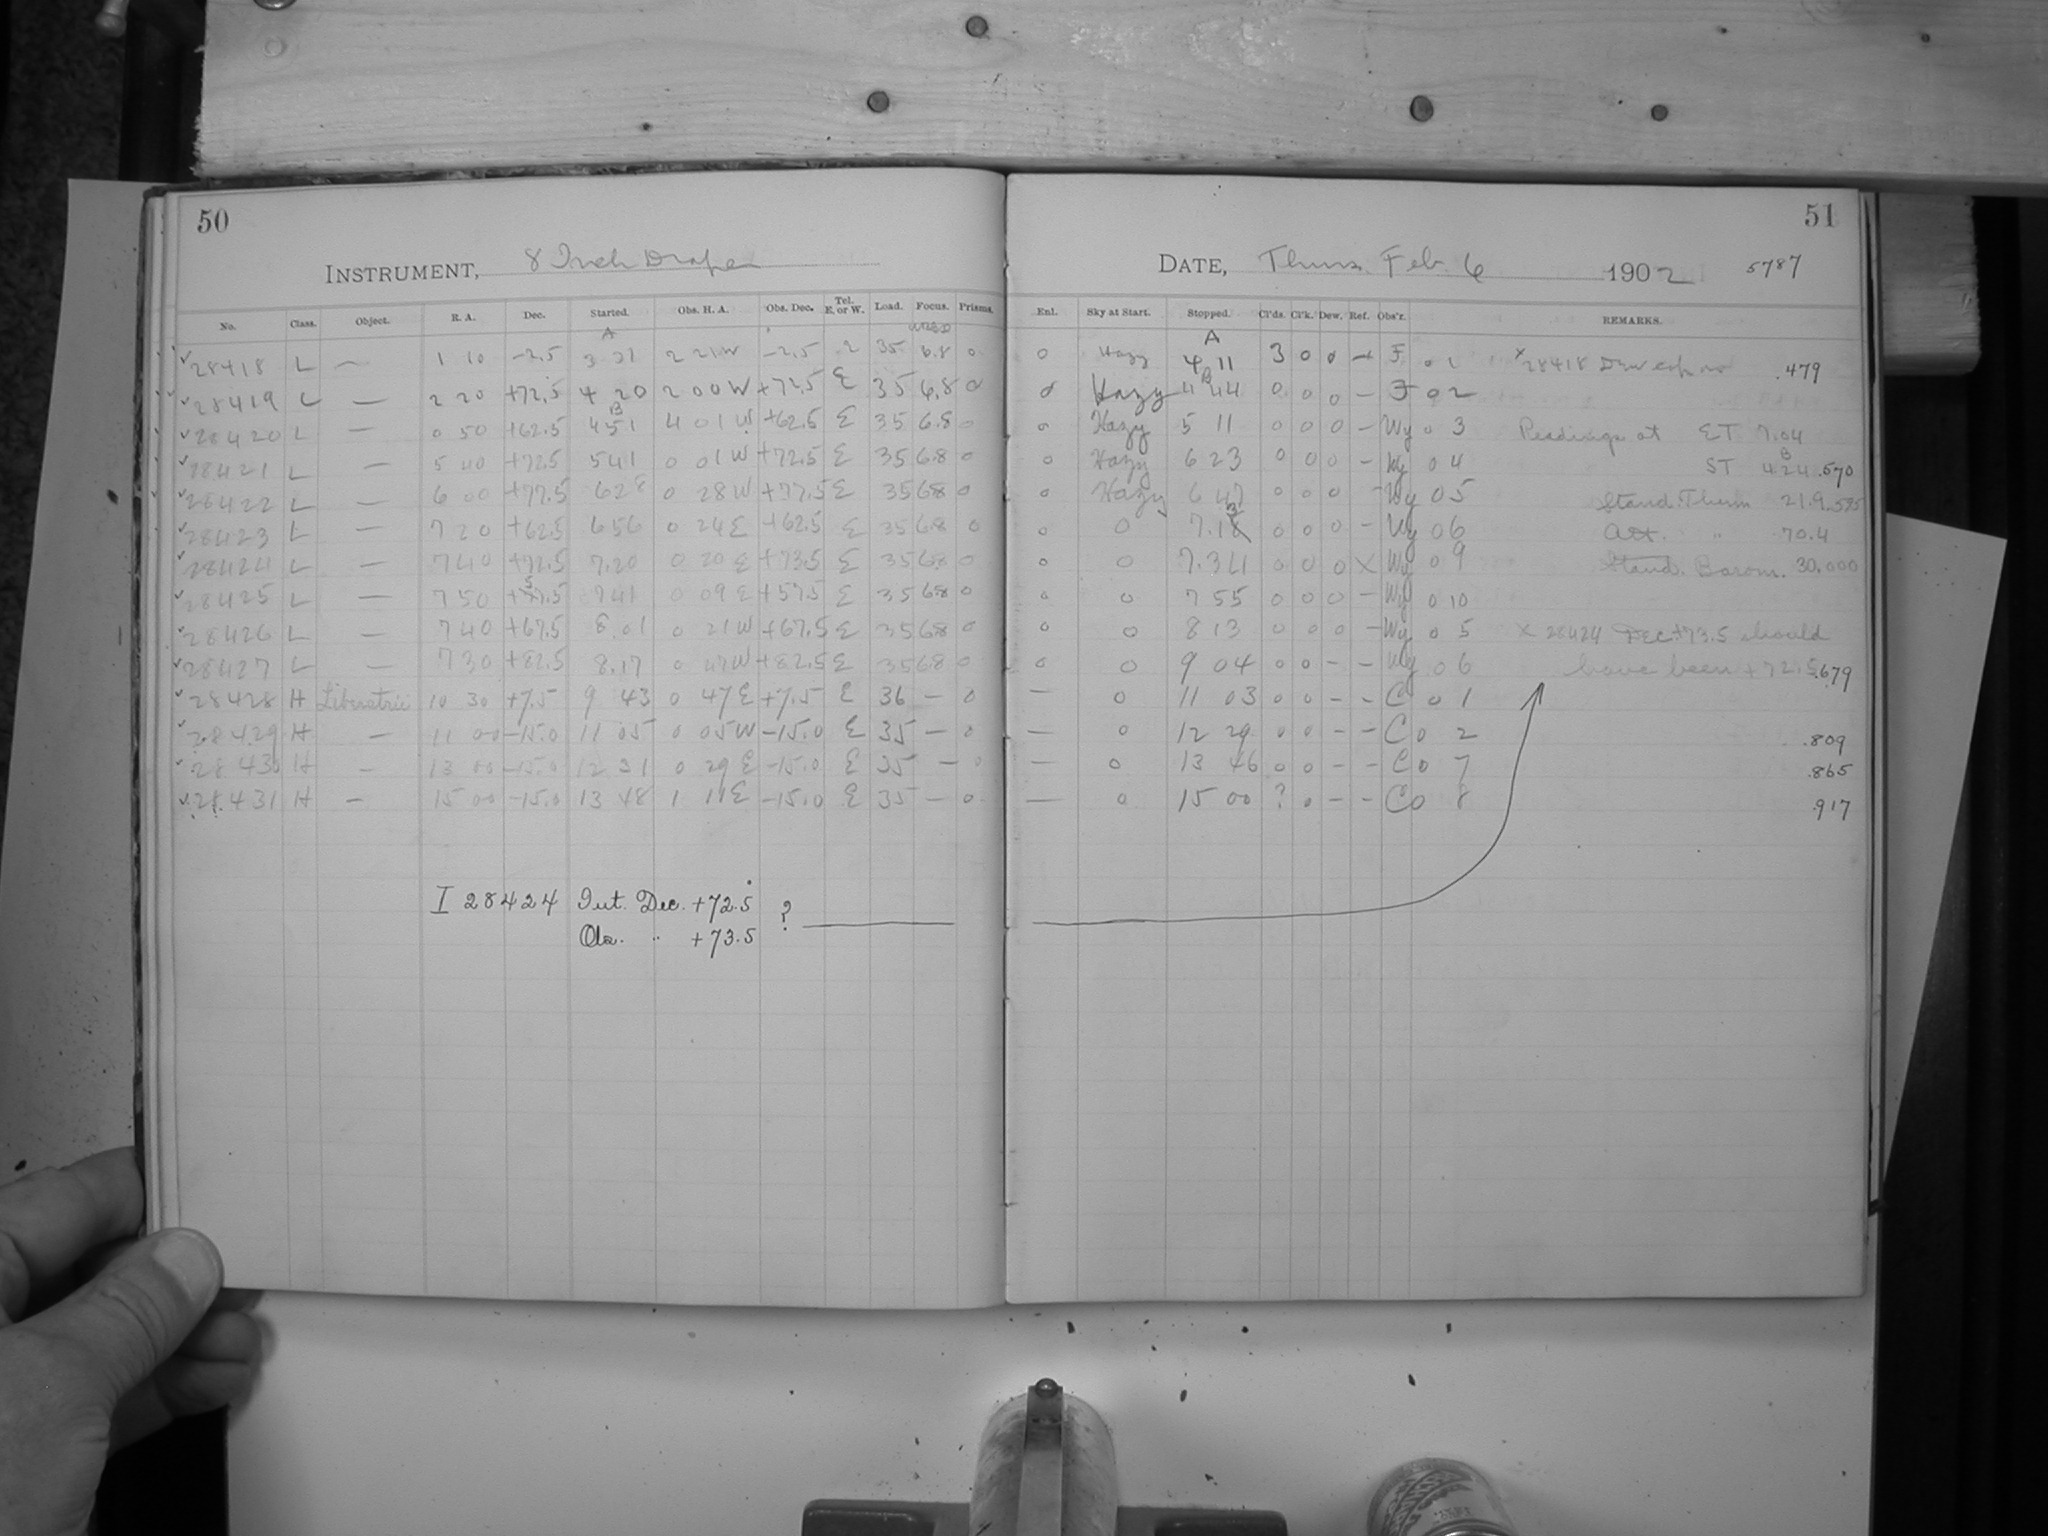 50
INSTRUMENT, 8 Inch Draper
No. Class. Object. R. A. Dec. Started. Obs. H. A. Obs. Dec. Tel. E. or W. Load. Focus. Prisms.
A
28418 L — 1 10 -2.5 3 31 2 21 W -2.5 2 35 6.8 0
28419 L — 2 20 +72.5 4 20 2 00 W +72.5 E 35 6.8 0
B
28420 L — 0 50 +62.5 4 51 4 01 W +62.5 E 35 6.8 0
28421 L — 5 40 +72.5 5 41 0 01 W +72.5 E 35 6.8 0
28422 L — 6 00 +77.5 6 28 0 28 W +77.5 E 35 6.8 0
28423 L — 7 20 +62.5 6 56 0 24 E +62.5 E 35 6.8 0
28424 L — 7 40 +72.5 7.20 0 20 E +73.5 E 35 6.8 0
28425 L — 7 50 +57.5 7 41 0 09 E +57.5 E 35 6.8 0
28426 L — 7 40 +67.5 8.01 0 21 W +67.5 E 35 6.8 0
28427 L — 7 30 +82.5 8.17 0 47 W +82.5 E 35 6.8 0
28428 H 10 30 +7.5 9 43 0 47 E +7.5 E 36 — 0
28429 H — 11 00 -15.0 11 05 0 05 W -15.0 E 35 — 0
28430 H — 13 00 -15.0 12 31 0 29 E -15.0 E 35 — 0
28431 H — 15 00 -15.0 13 48 1 11 E -15.0 E 35 — 0
I 28424 Int. Dec. +72.5 ?
Obs. " +73.5
51
DATE, Thurs. Feb. 6 1902 5787
Enl. Sky at Start. Stopped. Cl'ds. Cl'k. Dew. Ref. Obs'r. REMARKS.
A
0 Hazy 4 11 3 0 0 - F. 0 1 x 28418 Dew .479
B
0 Hazy 4 44 0 0 0 - F 0 2
0 Hazy 5 11 0 0 0 - Wy 0 3 Readings at ET 7.04
B
0 Hazy 6 23 0 0 0 - Wy 0 4 ST 4 24 .570
0 Hazy 6 47 0 0 0 - Wy 0 5 Stand. Therm 21.9 .595
0 0 7.13 0 0 0 - Wy 0 6 Att. " 70.4
0 0 7.34 0 0 0 X Wy 0 9 Stand. Barom. 30.000
0 0 7 55 0 0 0 - Wy 0 10
0 0 8 13 0 0 0 - Wy 0 5 X 28424 Dec +73.5 should
0 0 9 04 0 0 - - Wy 0 6 have been +72.5 .679
— 0 11 03 0 0 - - C 0 1
— 0 12 29 0 0 - - C 0 2 .809
— 0 13 46 0 0 - - C 0 7 .865
— 0 15 00 ? 0 - - C 0 8 .917